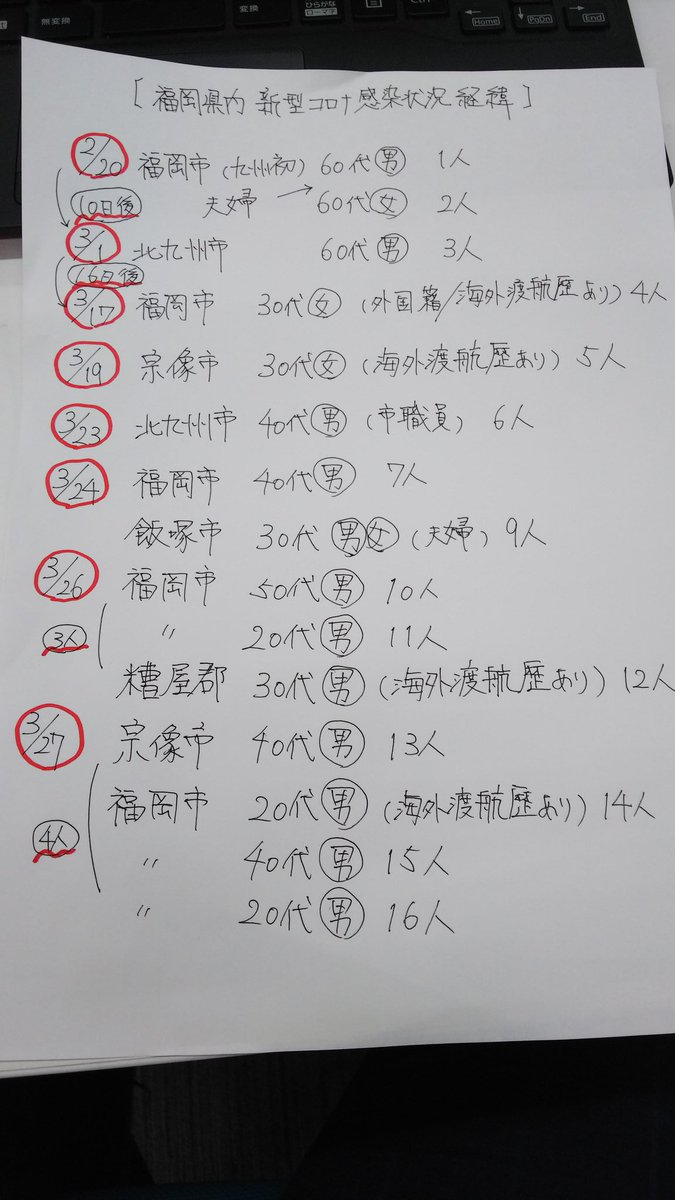 無変換
変換
ひらがな
ローマ字
Ctrl
Home
PgDn
End
[福岡県内 新型コロナ感染状況 経緯]
2/20 福岡市(九州初) 60代男 1人
10日後 夫婦 → 60代女 2人
3/1 北九州市 60代男 3人
16日後
3/17 福岡市 30代女 (外国籍/海外渡航歴あり) 4人
3/19 宗像市 30代女 (海外渡航歴あり) 5人
3/23 北九州市 40代男 (市職員) 6人
3/24 福岡市 40代男 7人
飯塚市 30代男女 (夫婦) 9人
3/26 福岡市 50代男 10人
3人 〃 20代男 11人
糟屋郡 30代男 (海外渡航歴あり) 12人
3/27 宗像市 40代男 13人
福岡市 20代男 (海外渡航歴あり) 14人
4人 〃 40代男 15人
〃 20代男 16人